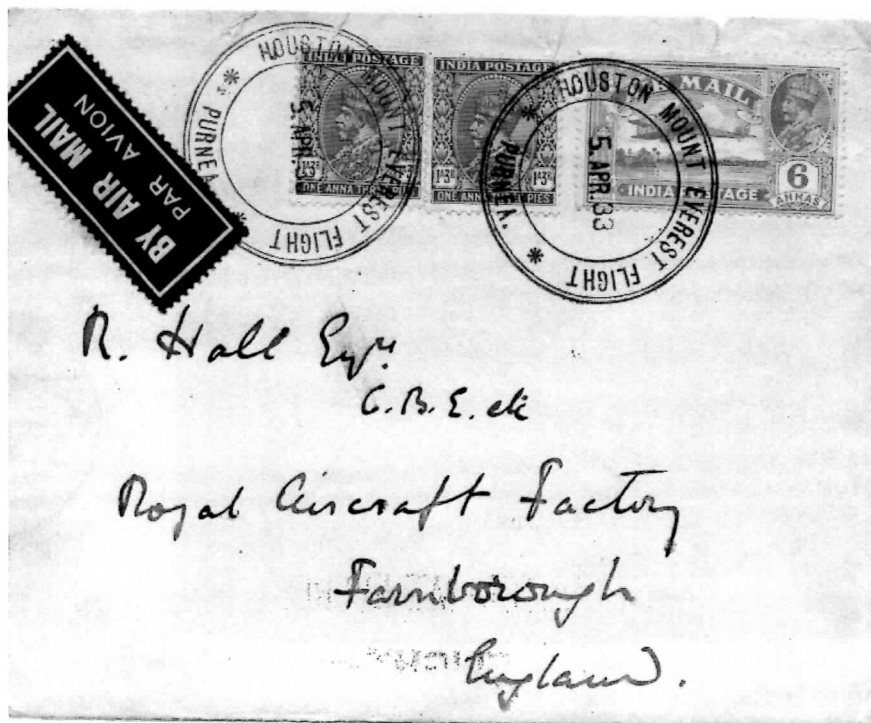 BY AIR MAIL
PAR AVION
HOUSTON MOUNT EVEREST FLIGHT
* PURNEA *
5 APR.
INDIA POSTAGE
1A3P
ONE ANNA THREE PIES
INDIA POSTAGE
1A3P 1A3P
ONE ANNA PIES
HOUSTON MOUNT EVEREST FLIGHT
* PURNEA. *
5 APR. 33
MAIL
INDIA POSTAGE
6
ANNAS
R. Hall Esqre
C.B.E. etc
Royal Aircraft Factory
Farnborough
England.